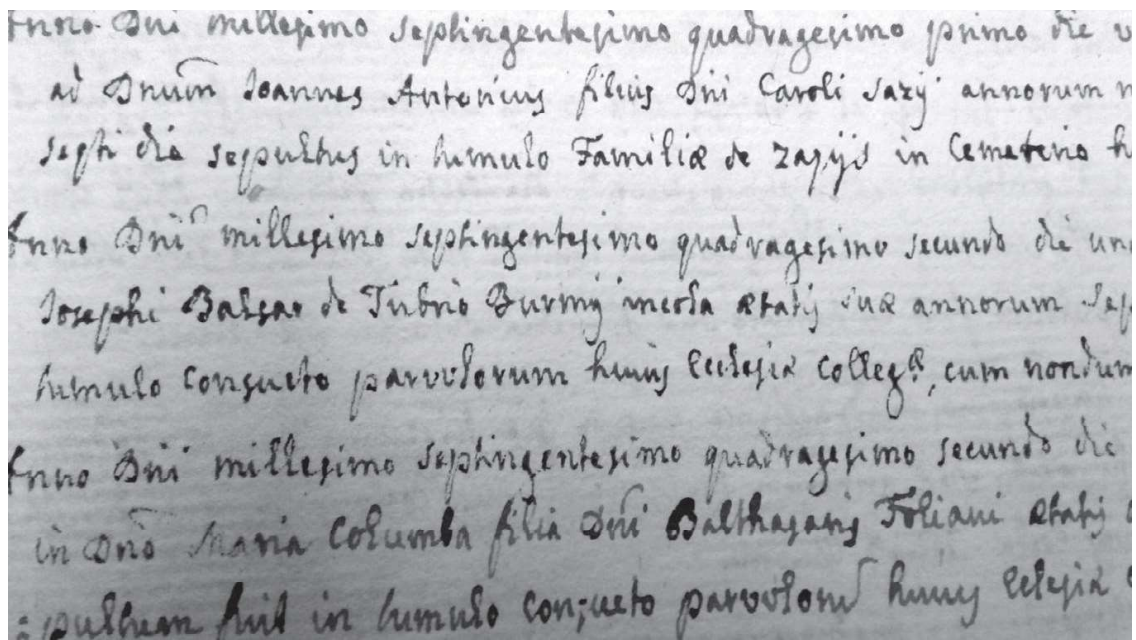 Anno Dni millesimo septingentesimo quadragesimo primo die
ad Dnum Joannes Antonius filius Dni Caroli Sazij annorum
septi die sepultus in tumulo Familiæ de Zazijs in Cemeterio
Anno Dni millesimo septingentesimo quadragesimo secundo die
Josephi de Burmij incola ætatis suæ annorum
tumulo consueto parvolorum huius Ecclesiæ cum nondum
Anno Dni millesimo septingentesimo quadragesimo secundo die
in Dno Maria Columba filia Dni Balthasaris Foliani ætatis
fuit in tumulo consueto huius Eclesiæ